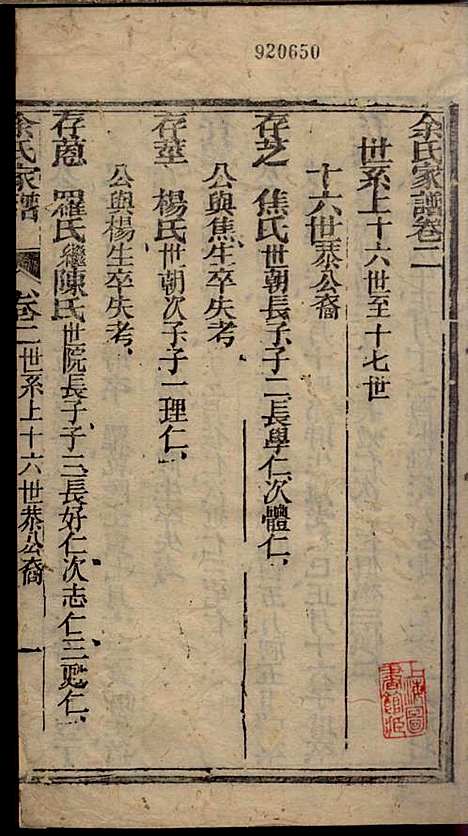 920650
余氏家譜卷二
世系上十六世至十七世
十六世泰公裔
存芝 焦氏世朝長子子二長學仁次體仁
公與焦生卒失考
存莖 楊氏世朝次子子一理仁
公與楊生卒失考
存蔥 羅氏繼陳氏世院長子子三長好仁次志仁三
余氏家譜 卷二世系上十六世恭公裔 一
上海圖書館藏